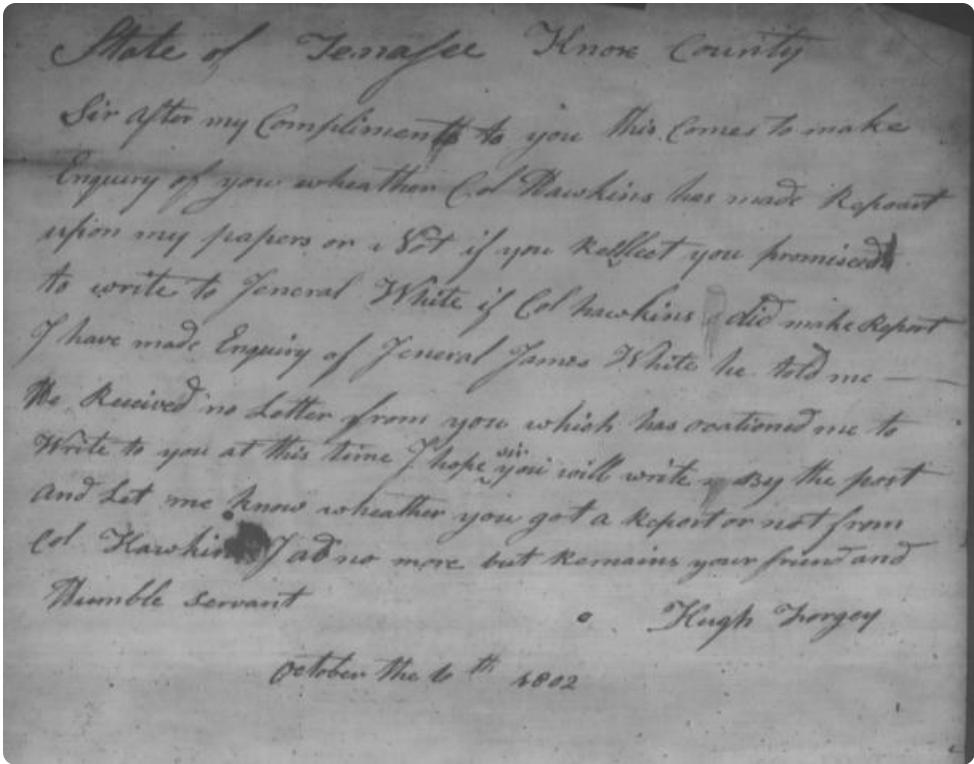 State of Tenasee Knox County
Sir after my Compliments to you this Comes to make
Enquiry of you wheather Col Hawkins has made Repoart
upon my papers or Not if you Rekllect you promised
to write to Jeneral White if Col hawkins did make Report
I have made Enquiry of Jeneral James White he told me
He Received no Letter from you which has ocationed me to
Write to you at this time I hope sir you will write By the post
and Let me know wheather you got a Report or not from
Col Hawkins I ad no more but Remains your friend and
Humble Servant
Hugh Forgey
October the 10th 1802